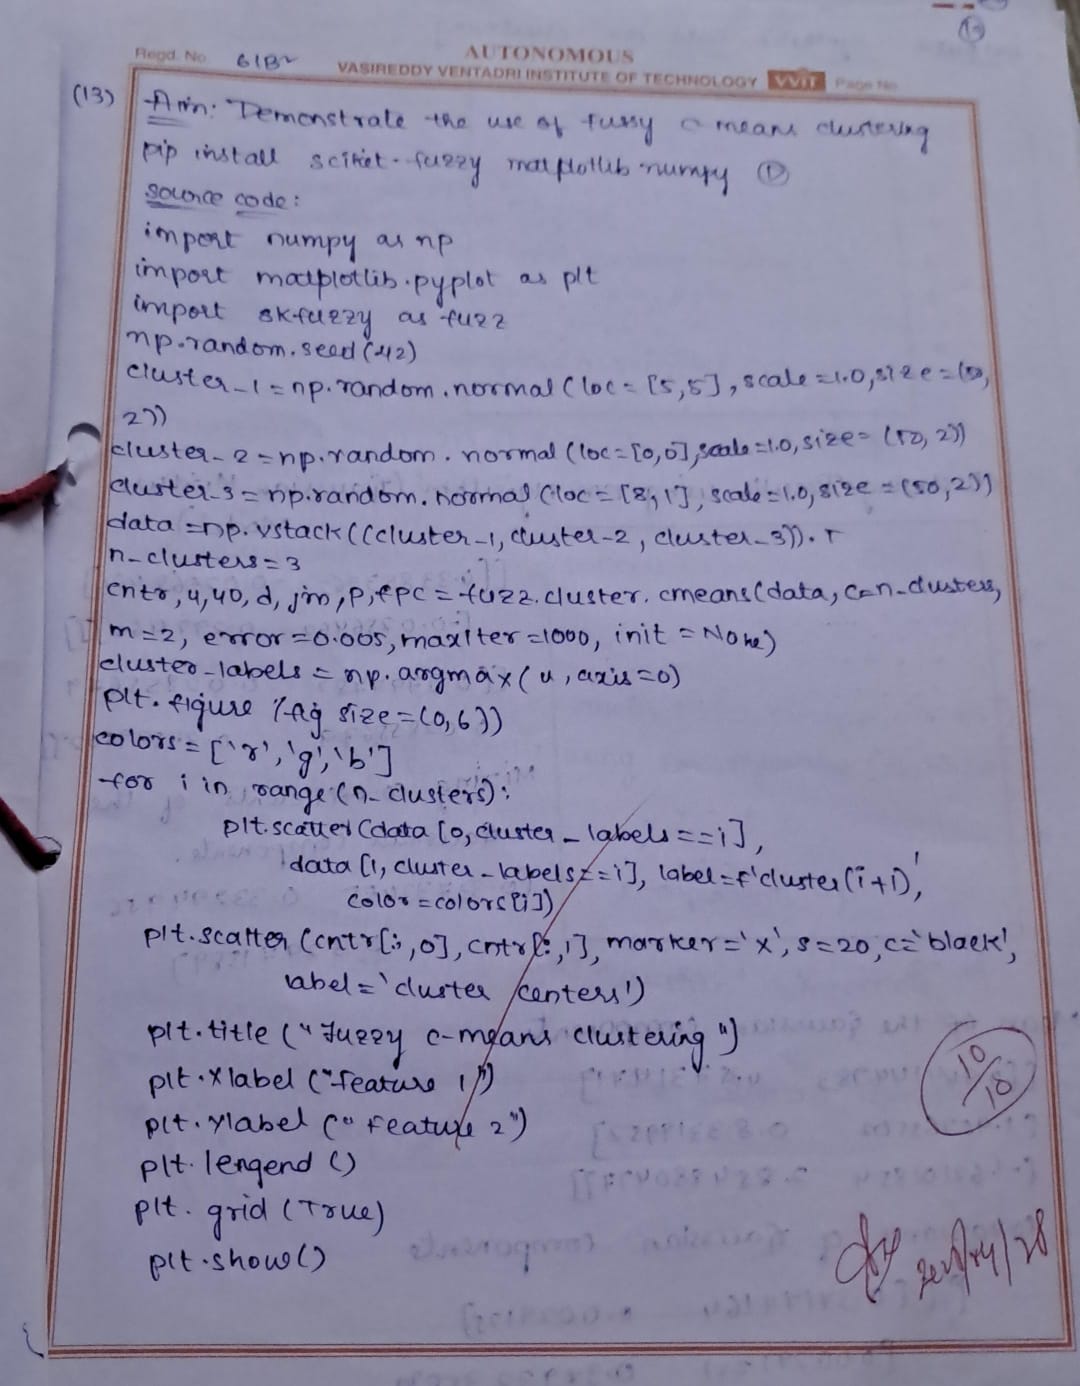 Regd. No 61B2
AUTONOMOUS
VASIREDDY VENTADRI INSTITUTE OF TECHNOLOGY VVIT Page No
(13) Aim: Demonstrate the use of fussy c means clustering
pip install scikit-fuzzy matplotlib numpy
source code:
import numpy as np
import matplotlib.pyplot as plt
import skfuzzy as fuzz
np.random.seed(42)
cluster_1 = np.random.normal(loc=[5,5], scale=1.0, size=(50,
2))
cluster_2 = np.random.normal(loc=[0,0], scale=1.0, size=(50, 2))
cluster_3 = np.random.normal(loc=[8,1], scale=1.0, size=(50,2))
data = np.vstack((cluster_1, cluster_2, cluster_3)).T
n_clusters=3
cntr, u, u0, d, jm, p, fpc = fuzz.cluster.cmeans(data, c=n_clusters,
m=2, error=0.005, maxiter=1000, init=None)
cluster_labels = np.argmax(u, axis=0)
plt.figure(fig size=(0,6))
colors = ['r', 'g', 'b']
for i in range(n_clusters):
plt.scatter(data[0, cluster_labels==i],
data[1, cluster_labels==i], label=f'cluster{i+1}',
color=colors[i])
plt.scatter(cntr[:,0], cntr[:,1], marker='x', s=20, c='black',
label='cluster centers')
plt.title("Fuzzy c-means clustering")
plt.xlabel("feature 1")
plt.ylabel("Feature 2")
plt.lengend()
plt.grid(True)
plt.show()
10/10